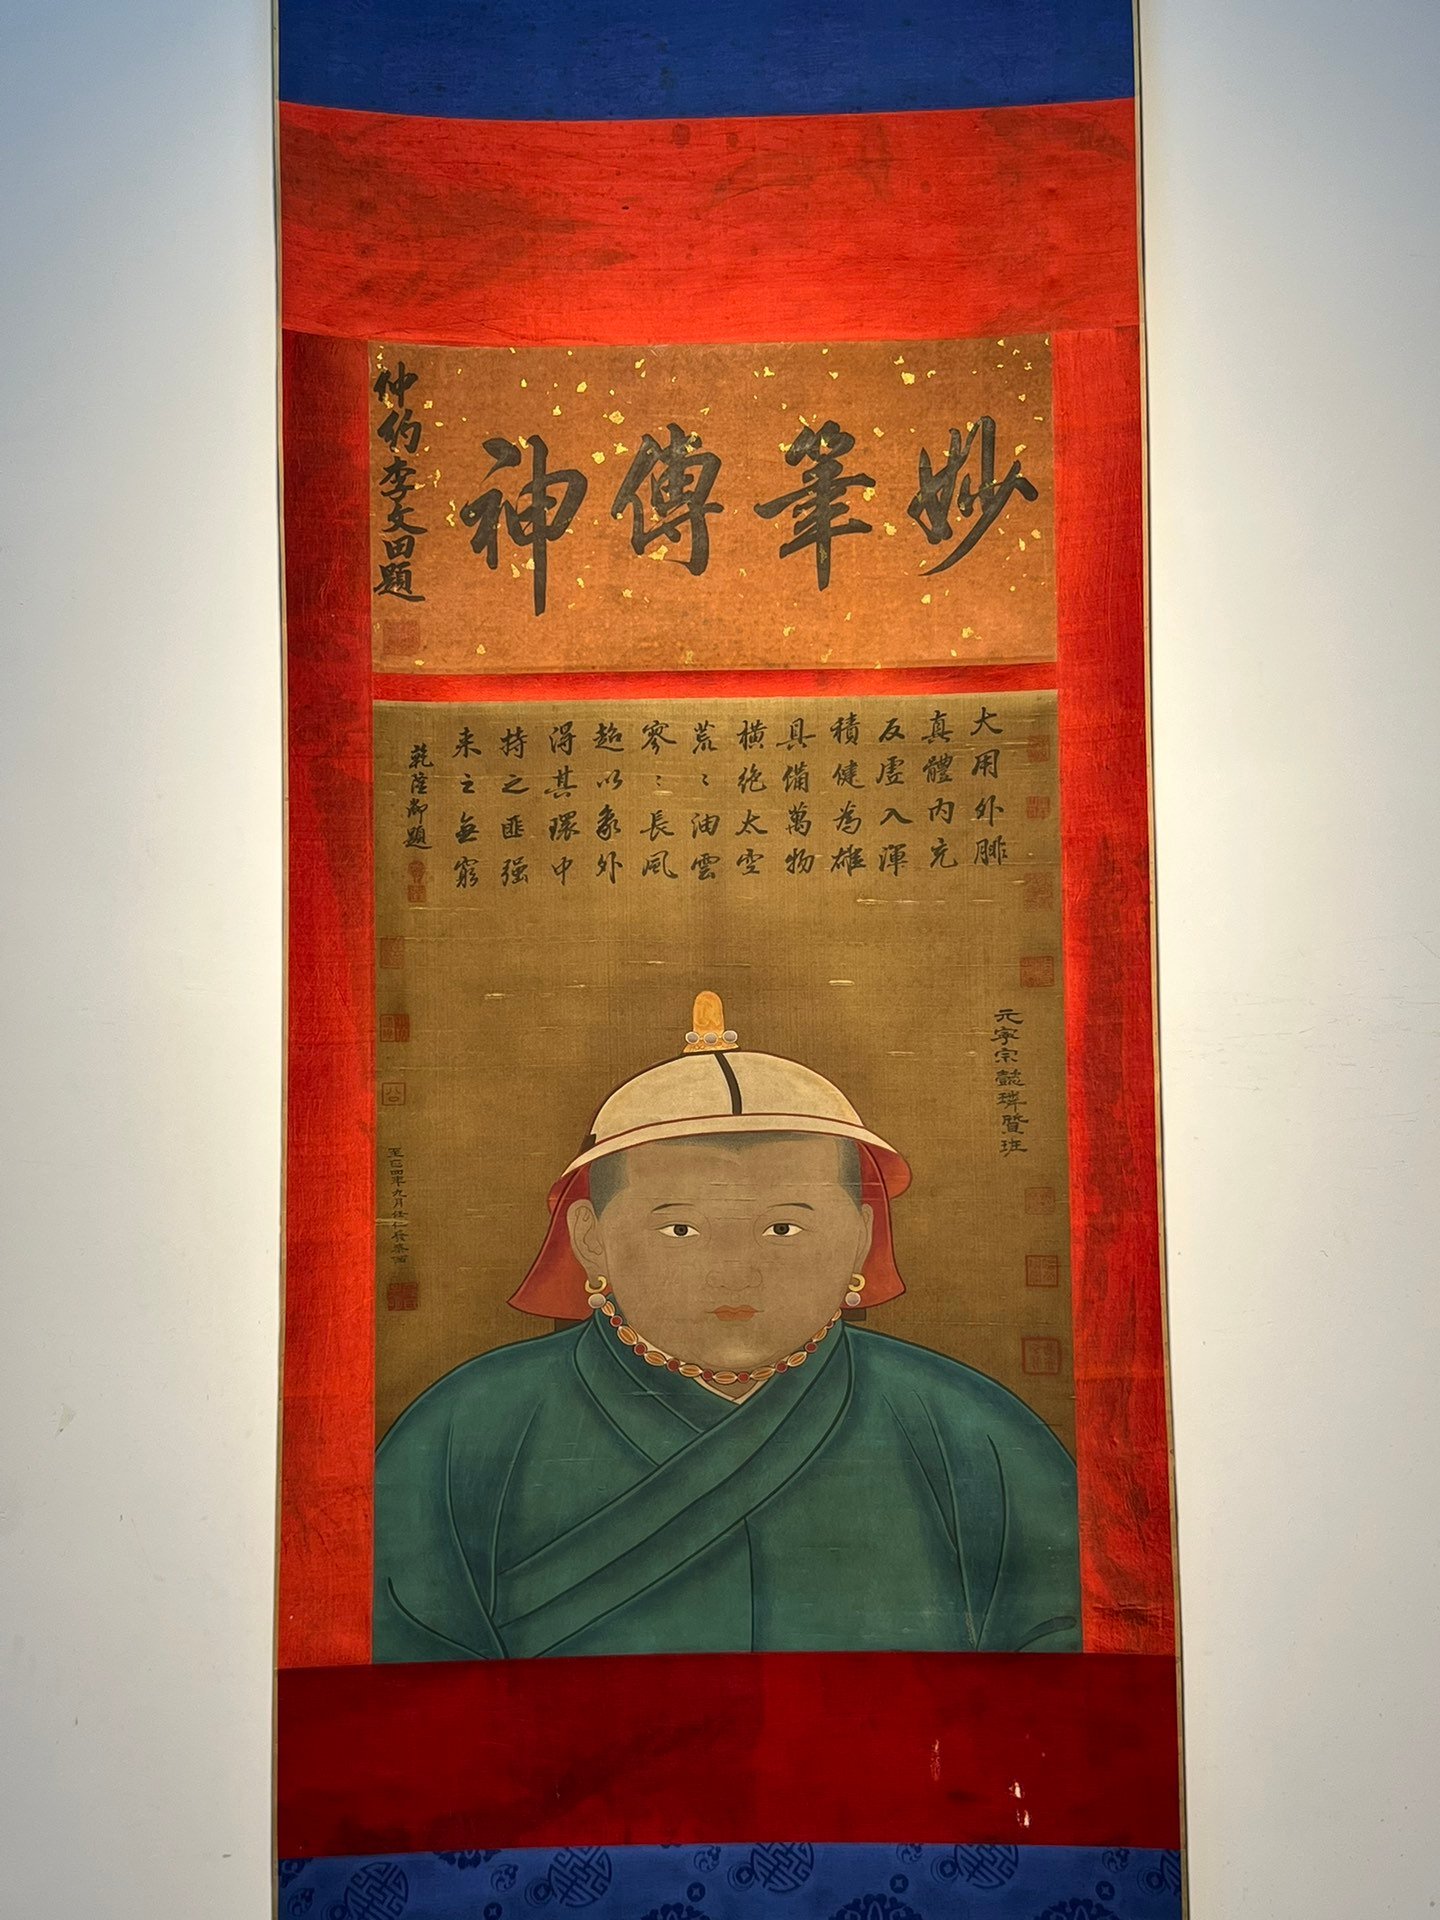 妙筆傳神
仲約李文田題
大用外腓
真體內充
反虛入渾
積健為雄
具備萬物
橫絕太空
荒〻油雲
寥〻長風
超以象外
得其環中
持之匪強
来之無窮
乾隆御題
元寧宗懿璘質班
至巳四年九月任仁發恭画